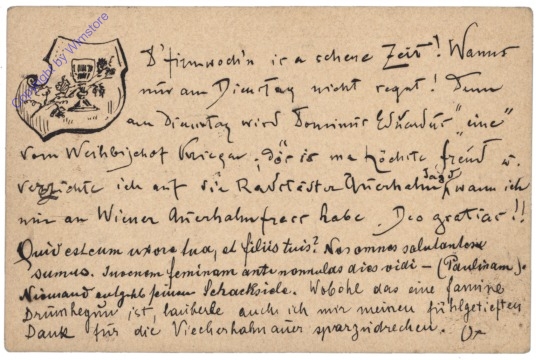 D'firmwoch'n is a schene Zeit! Wanns
mir am Dienstag nicht regnt! Denn
am Dienstag wird Dominus Eduardus "eine"
vom Weihbischof Krieger, dös is ma höchste freud u.
verzichte ich auf die Radstädter Auerhahnjagd, wann ich
nur an Wiener Auerhahnfress habe. Deo gratias!!
Quid est cum uxore tua, et filiis tuis? Nos omnes salutantes
sumus. Iuvenem feminam ante nonnulas dies vidi - (Paulinam).
Niemand entgeht seinem Schacksiele. Wobohl das eine famine
ist, auch ich mir meinen fühlgetieften
Dank für die Viecherhahnauer
Copyright by Wimstore